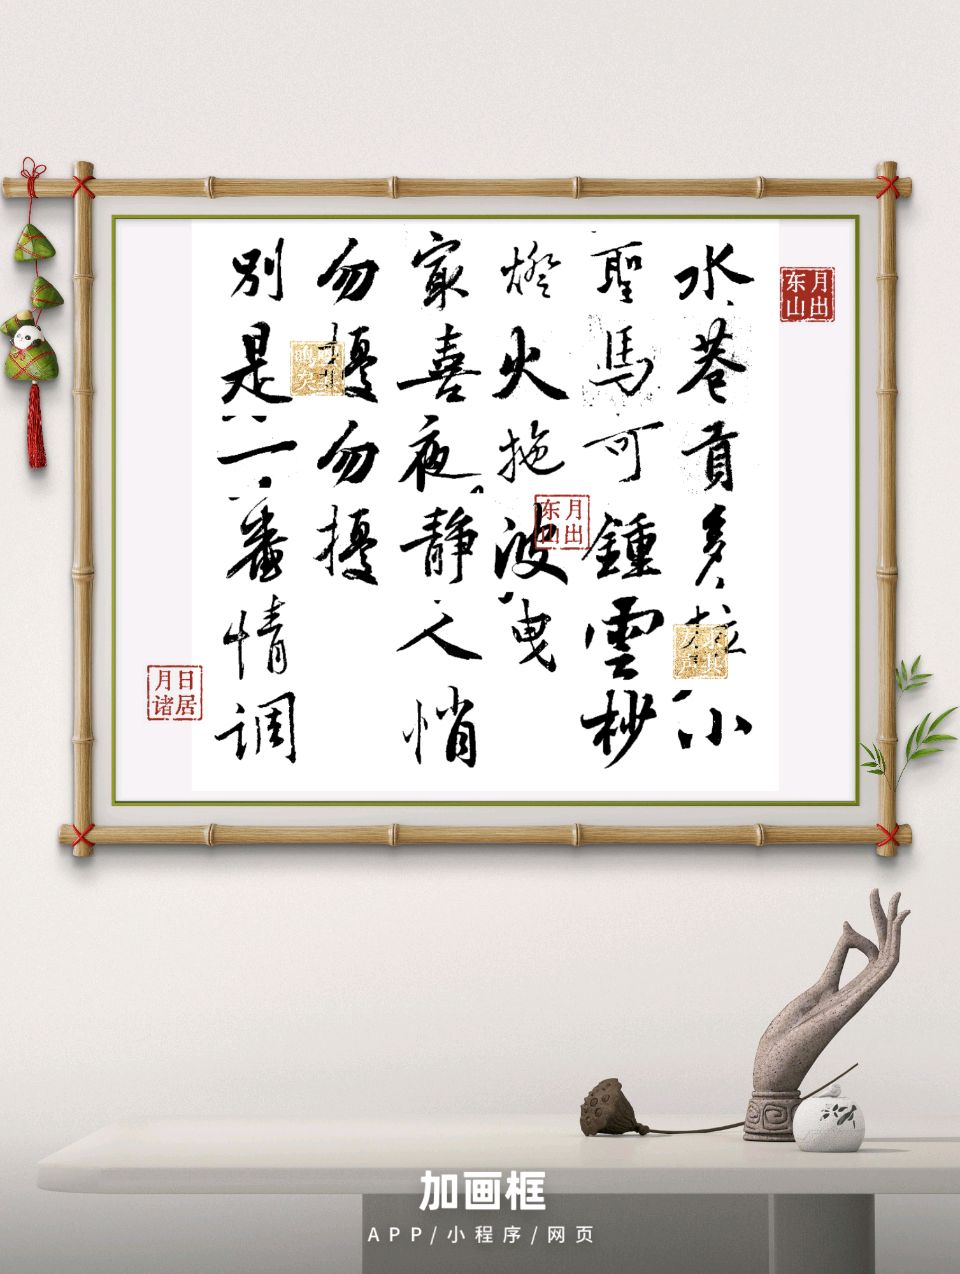 水巷貢多拉小
聖馬可鍾雲杪
燈火拖波曳
最喜夜静人悄
勿擾勿擾
别是一番情调
月出东山
月出东山
日居月诸
加画框
APP/小程序/网页